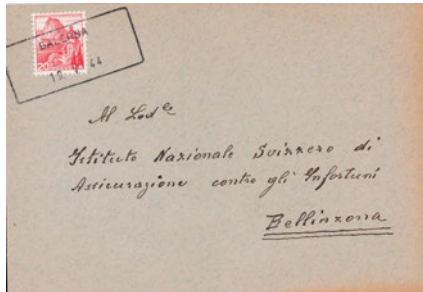 BALERNA
19. V. 44
20
Al Lod.le
Istituto Nazionale Svizzero di
Assicurazione contro gli Infortuni
Bellinzona